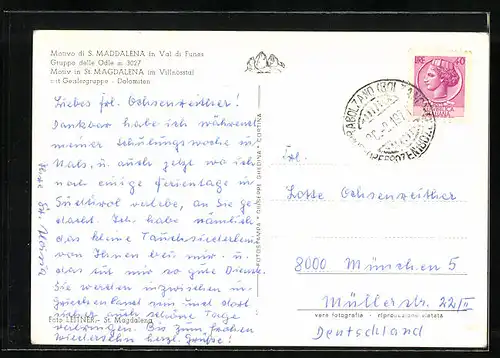 Motivo di S. MADDALENA in Val di Funes
Gruppo delle Odle m. 3027
Motiv in St. MAGDALENA im Villnösstal
mit Geislergruppe - Dolomiten
Liebes Frl. Ochsenreither!
Dankbar habe ich während
meiner Schulungswoche in
Nals, u. auch jetzt wo ich
noch einige Ferientage in
Südtirol verlebe, an Sie ge-
dacht. Ich habe nämlich
das kleine
von Ihnen bei mir u.
das tut mir so gute Dienste.
Sie werden inzwischen in
Griechenland sein und dort
sicher auch schöne Tage
verbringen. Bis zum frohen
Wiedersehn herzl. Grüße!
Ihre
Foto LEITNER - St. Magdalena
FOTOSTAMPA - GIUSEPPE GHEDINA - CORTINA
LIRE 40
BOLZANO (BOLZANO)
Frl.
Lotte Ochsenreither
8000 München 5
Müllerstr. 22/II
vera fotografia - riproduzione vietata
Deutschland